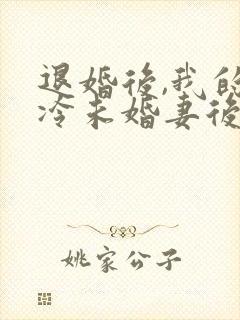 退婚後,我的
冷未婚妻後
姚家公子